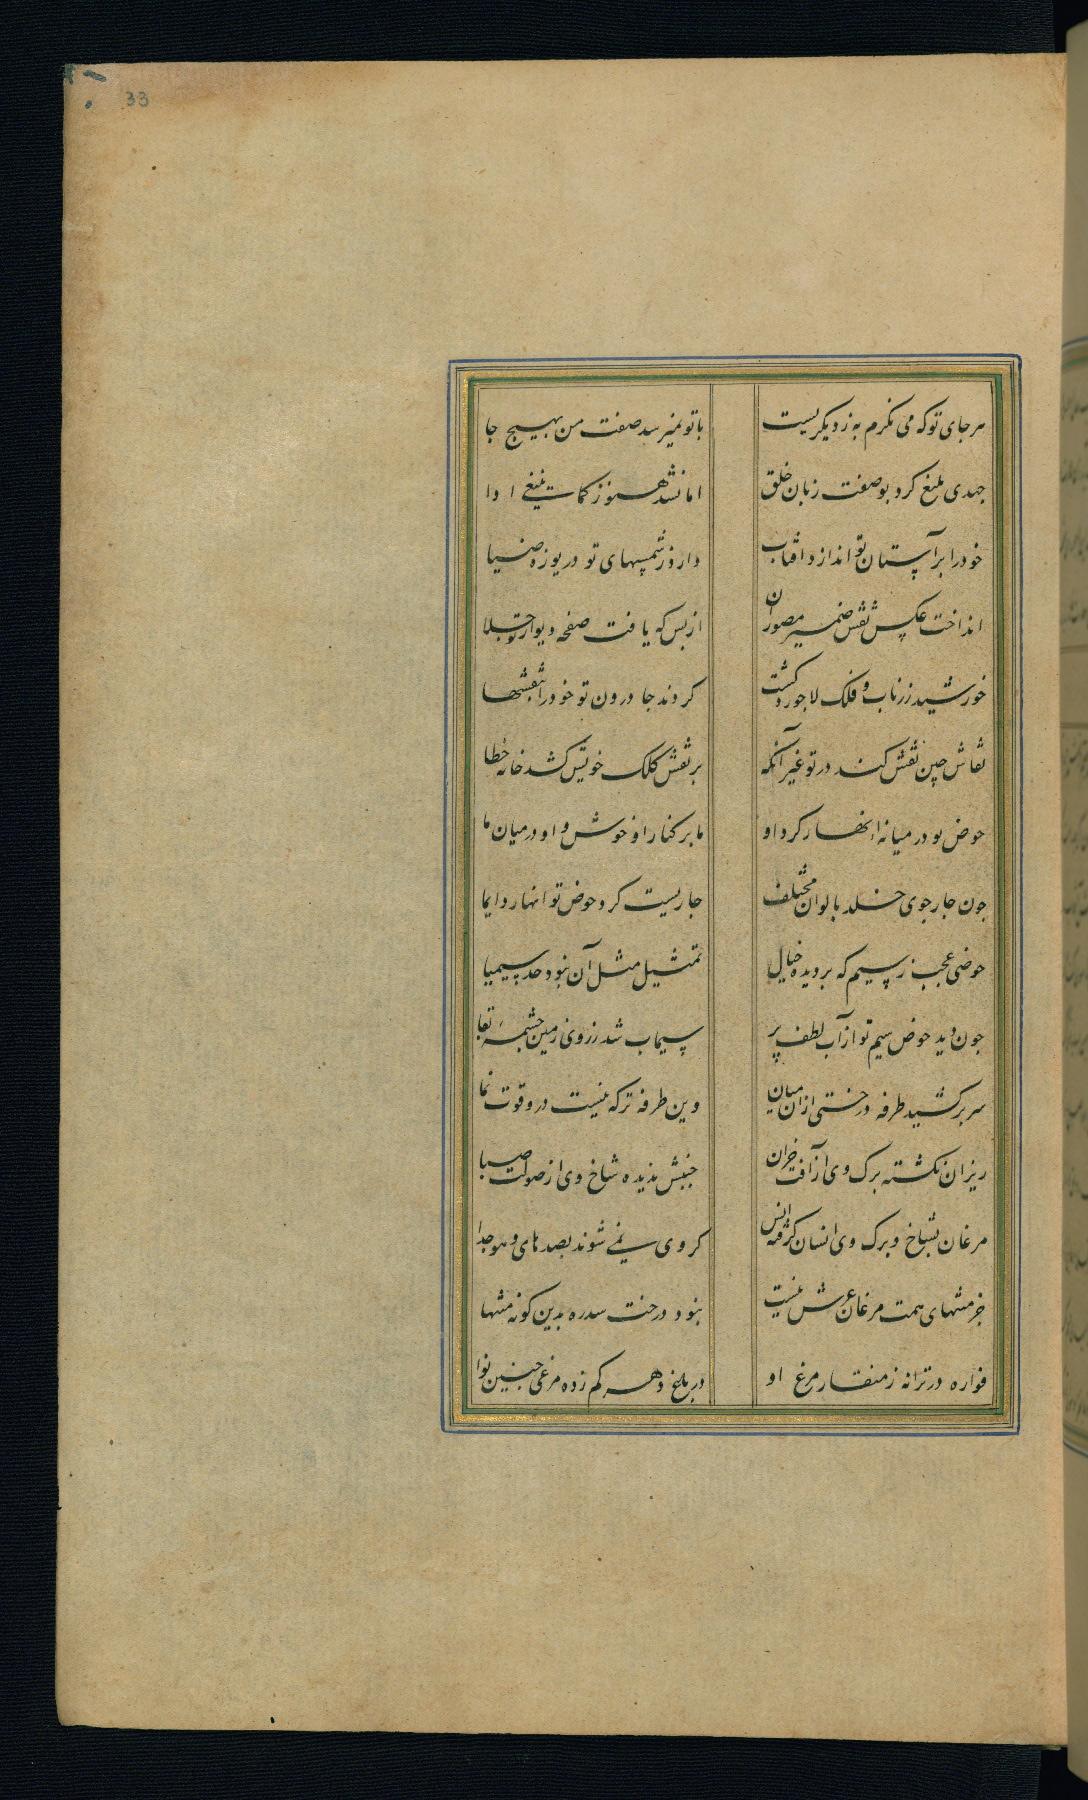 33
هرجای تو که می نکرم به ز دیکریست
با تو نمیرسد صفت من بهیچ جا
جهدی بلیغ کرد بوصفت زبان خلق
اما نشد هنوز کمات بلیغی ادا
خود را بر آستان تو اندازد آفتاب
دارد ز شمسهای تو دریوزه ضیا
انداخت عکس نقش ضمیر مصوران
از بس که یافت صفحه دیوار تو جلا
خورشید زرناب و فلک لاجورد کشت
کردند جا درون تو خود را بنقشها
نقاش چین نقش کند در تو غیر آنکه
بر نقش کلک خویش کشد خامه خطا
حوض تو در میانه انهار کرد او
ما بر کنار او خوش و او در میان ما
جون جار جوی خلد بالوان مختلف
جاریست کرد حوض تو انهار دایما
حوضی عجب ز سیم که بر دیده خیال
تمثیل مثل آن نبود حد سیمیا
جون دید حوض سیم تو از آب لطف پر
سیماب شد ز روی زمین چشمه بقا
سر بر کشید طرفه درختی از ان میان
وین طرفه ترکه نیست درو قوت نما
ریزان نکشته برک وی از آفت خزان
جنبش ندیده شاخ وی از صولت صبا
مرغان بشاخ و برک وی انسان کرفته انس
کز وی نمی شوند بصد های و هو جدا
جز مشتهای همت مرغان عرش نیست
نبود درخت سدره بدین کونه منتها
فواره در ترانه ز منقار مرغ او
در باغ دهر کم زده مرغی چنین نوا